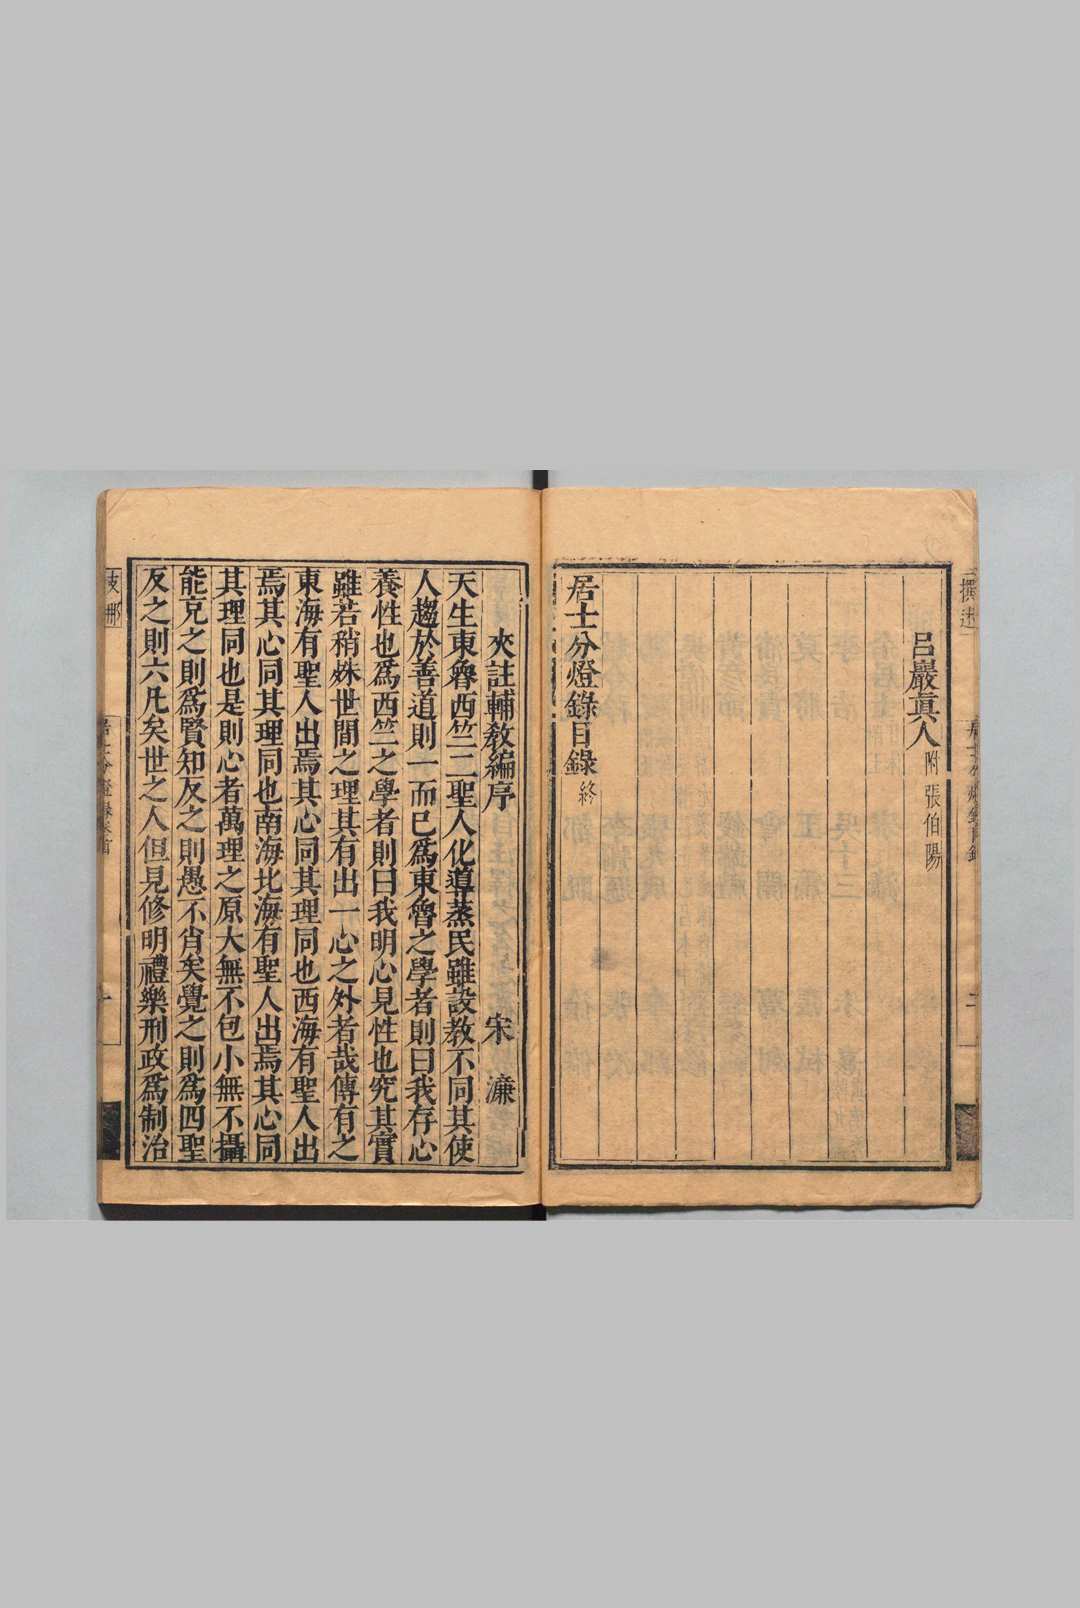 呂巖眞人附張伯陽
居士分燈錄目錄終
夾註輔敎編序 宋 濂
天生東魯西竺二聖人化導蒸民雖設教不同其使
人趨於善道則一而已爲東魯之學者則曰我存心
養性也爲西竺之學者則曰我明心見性也究其實
雖若稍殊世間之理其有出一心之外者哉傳有之
東海有聖人出焉其心同其理同也西海有聖人出
焉其心同其理同也南海北海有聖人出焉其心同
其理同也是則心者萬理之原大無不包小無不攝
能充之則爲賢知反之則愚不肖矣覺之則爲四聖
反之則六凡矣世之人但見修明禮樂刑政爲制治